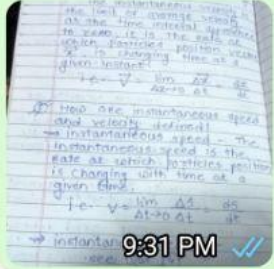 the instantaneous velocity is
the limit of average velocity
as the time interval approches
to zero. it is the rate at
which particles position vector
is changing with time at a
given instant.
i.e. v = lim Δt→0 Δx/Δt = dx/dt
How are instantaneous speed
and velocity defined?
→ instantaneous speed - The
instantaneous speed is the
rate at which particles position
is changing with time at a
given time.
i.e. v = lim Δt→0 Δs/Δt = ds/dt
→ instantan
9:31 PM